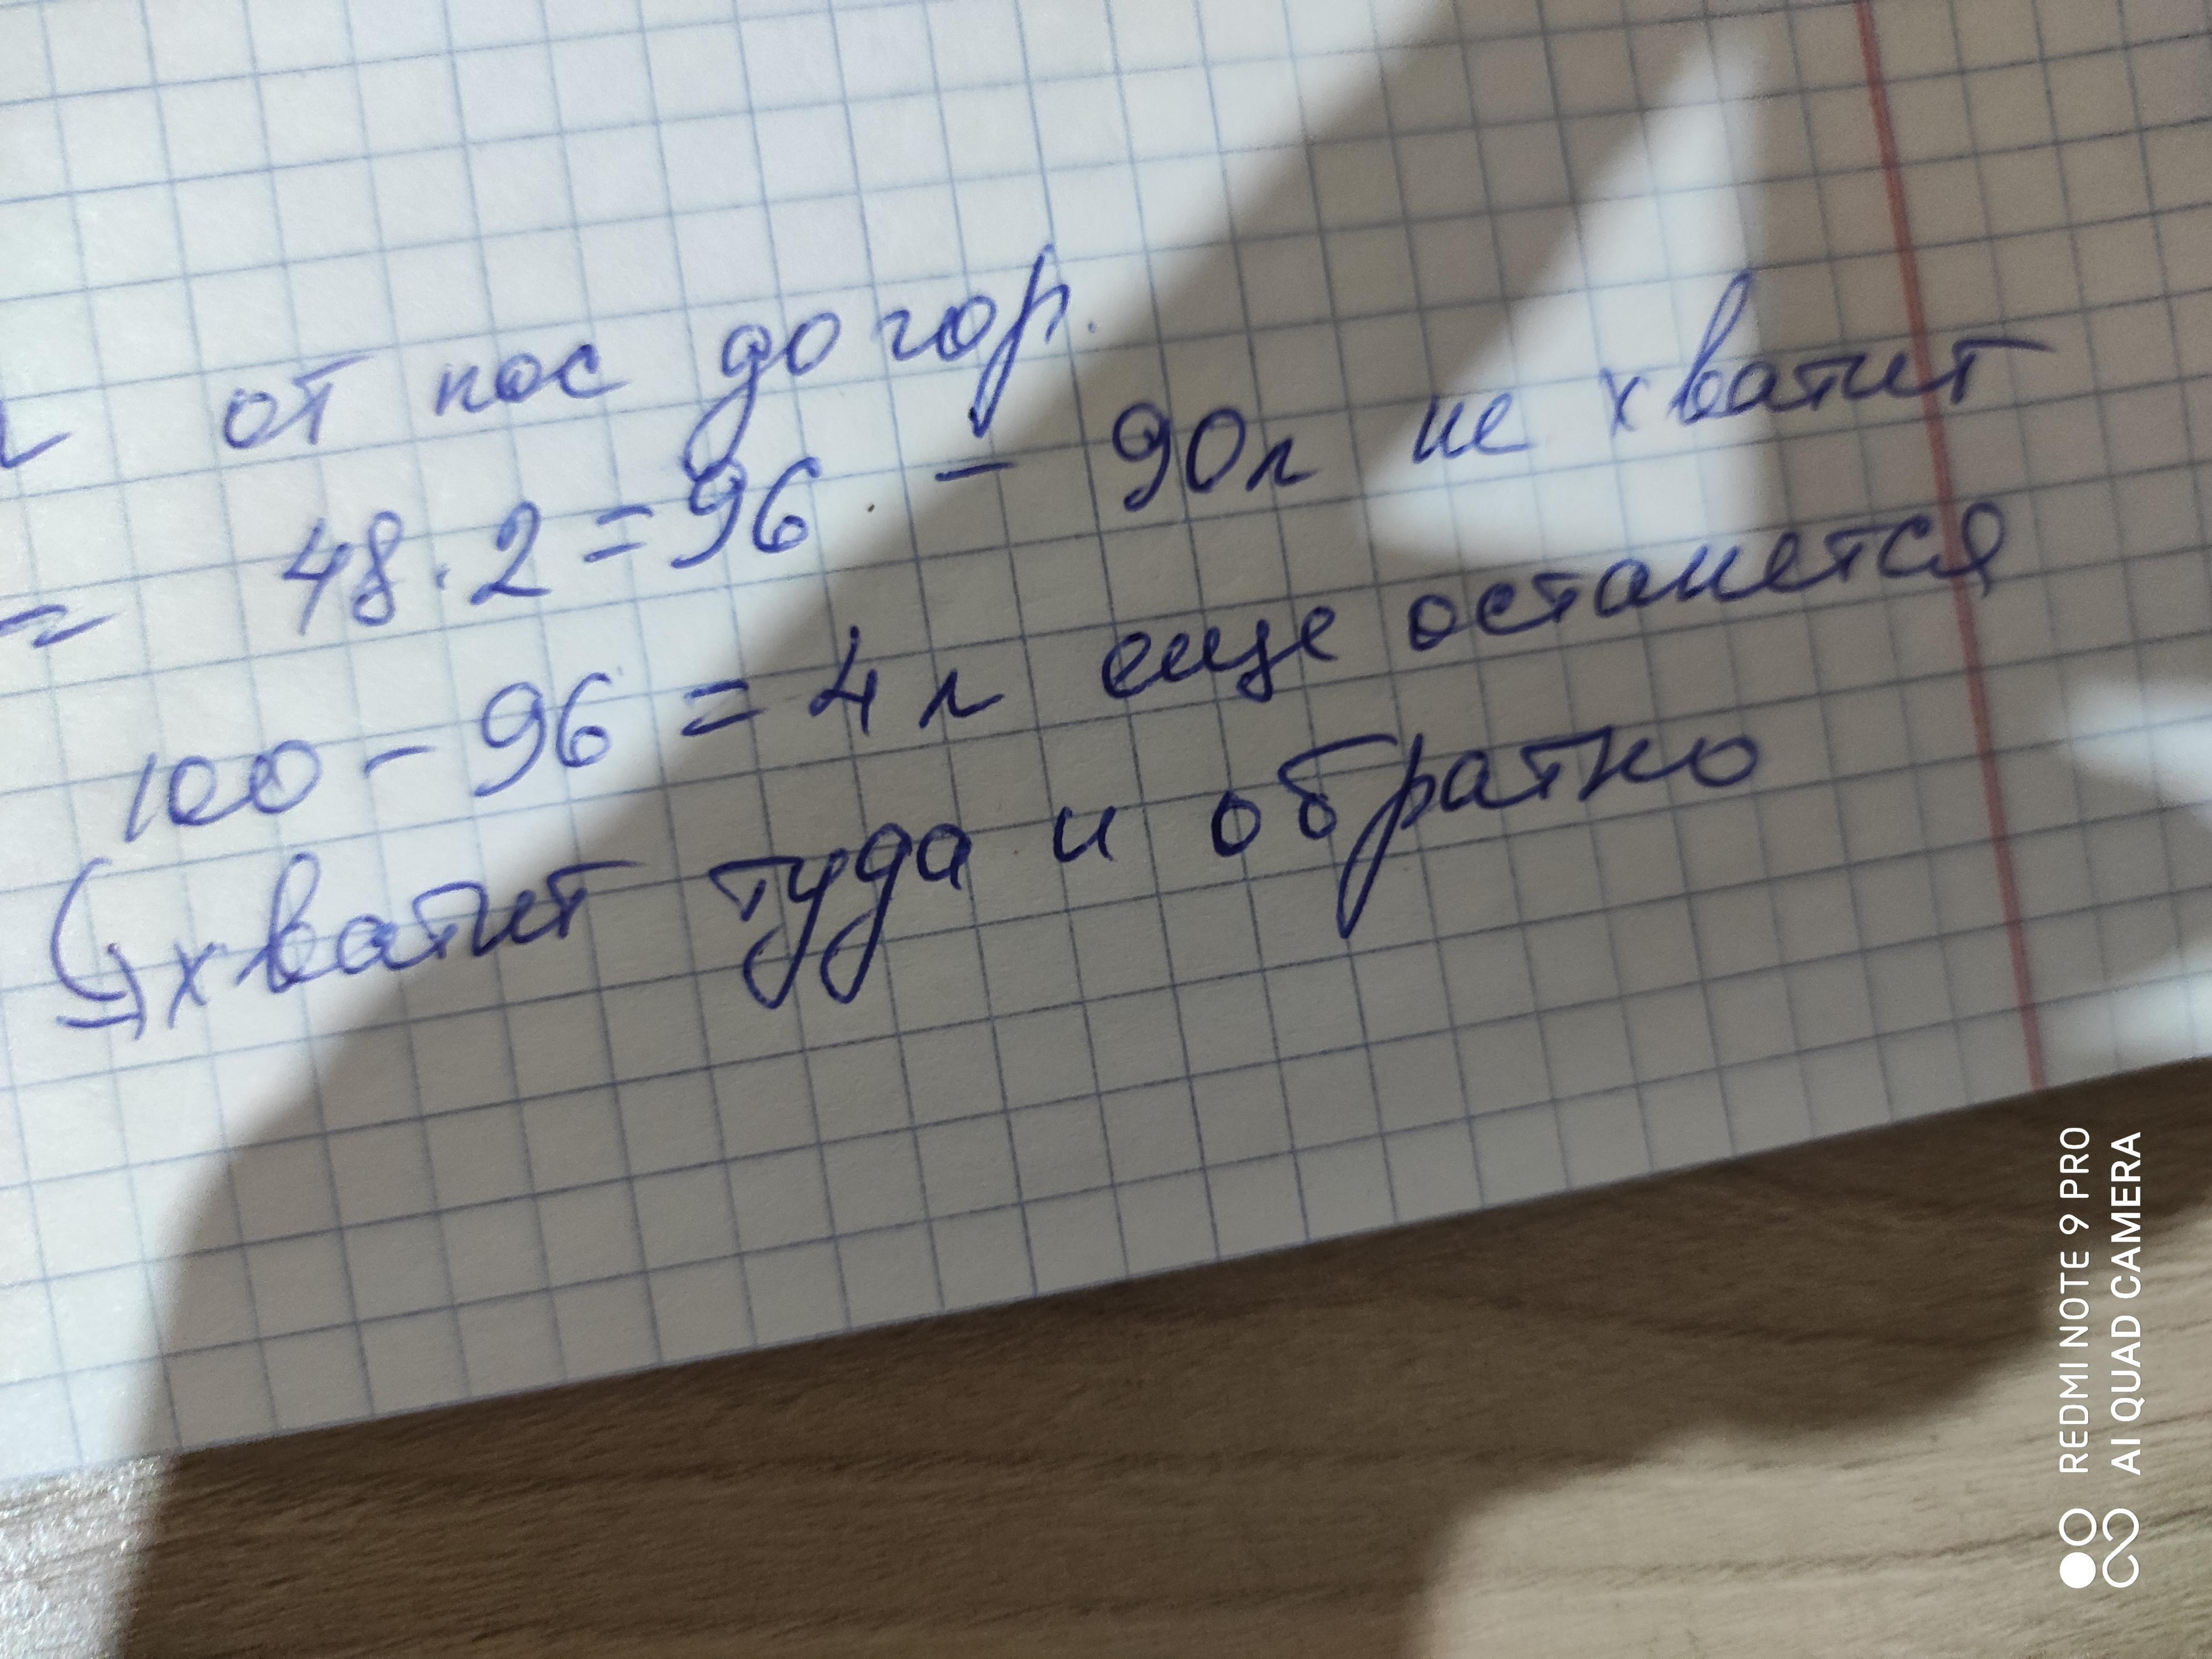 л от пос до гор.
= 48 · 2 = 96 - 90л не хватит
100 - 96 = 4 л еще останется
хватит туда и обратно
REDMI NOTE 9 PRO
AI QUAD CAMERA